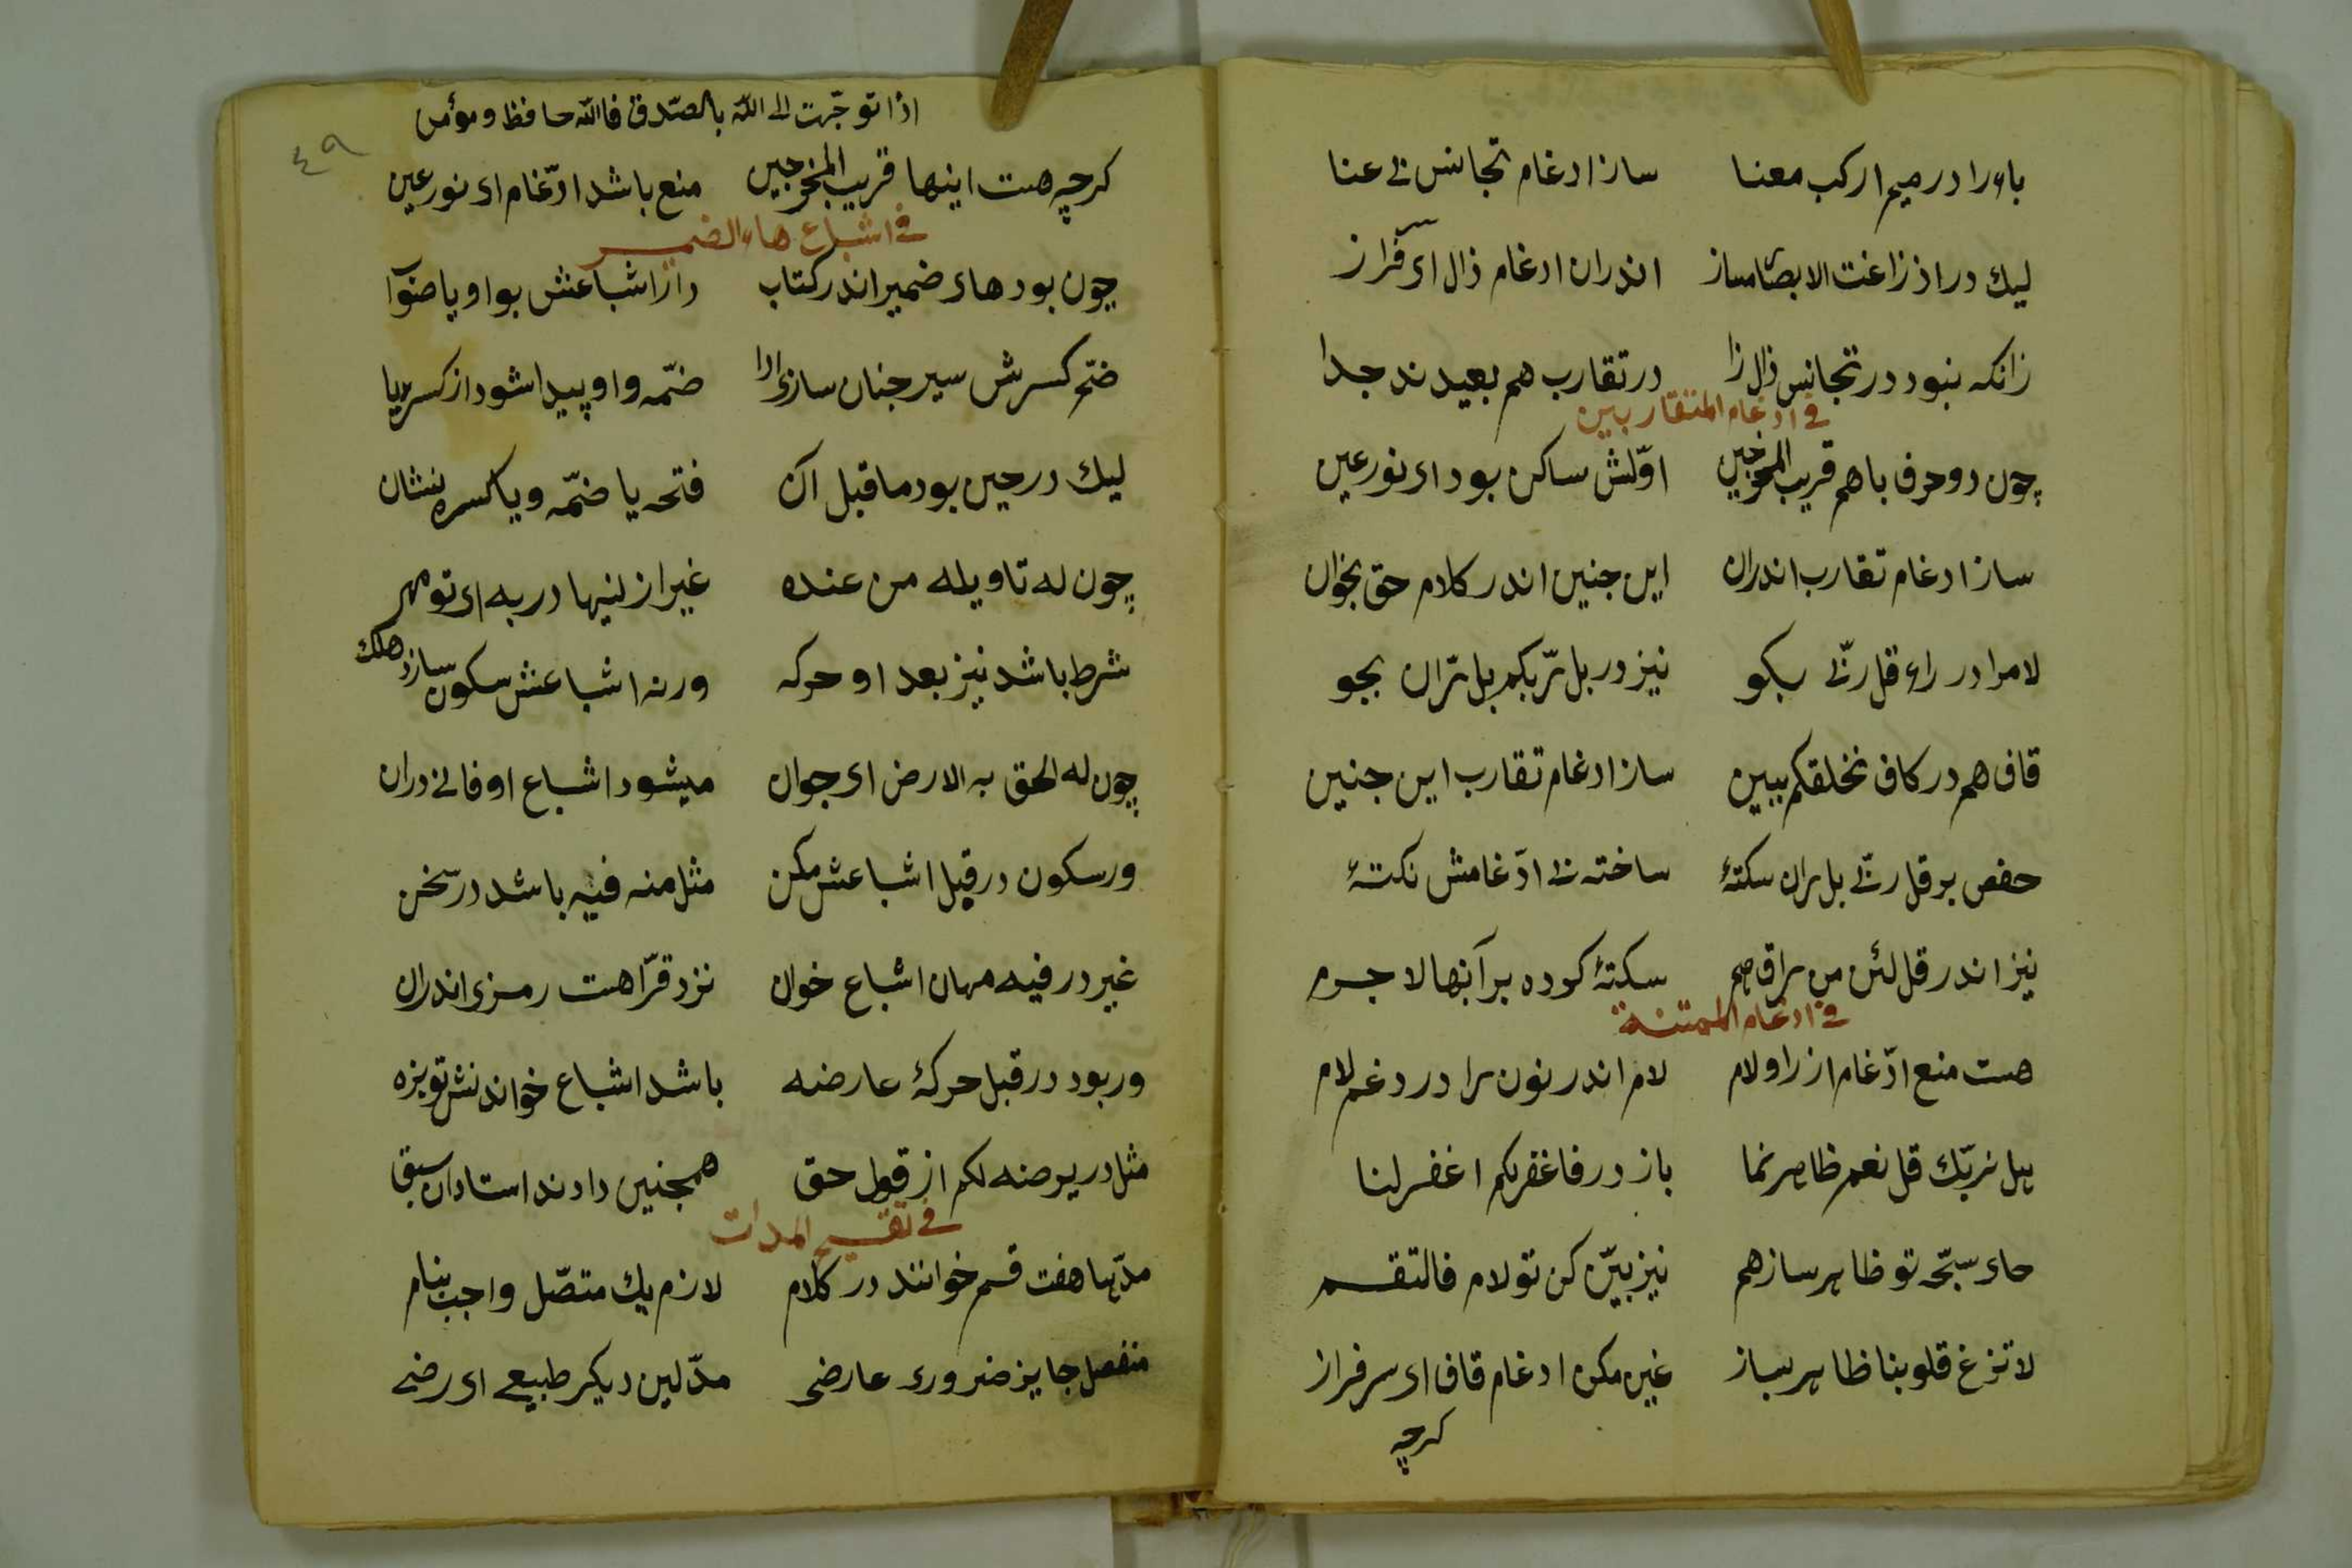 باء را در میم ارکب معنا ساز ادغام تجانس نی عنا
لیك در اذ زاغت الابصار ساز اندران ادغام ذال ای سرفراز
زانکه نبود در تجانس ذال زا در تقارب هم بعیدند جدا
فی ادغام المتقاربین
چون دو حرف باهم قریب المخرجین اوّلش ساکن بود ای نور عین
ساز ادغام تقارب اندران این چنین اندر کلام حق بخوان
لام را در راء قل ربّی بکو نیز در بل ربّکم بل رّان بجو
قاف هم در کاف نخلقکم ببین ساز ادغام تقارب این جنین
حفص بر قل ربّی بل ران سکتهٔ ساخته نی ادّغامش نکتهٔ
نیز اندر قل لئن من راق هم سکتهٔ کوده بر آنها لا جرم
فی ادغام الممتنة
هست منع ادّغام از را و لام لام اندر نون را در دغم لام
بل نربّك قل نعم ظاهر نما باز در فاغفر بکم اغفر لنا
حای سبّحه تو ظاهر ساز هم نیز بیّن کن تو لام فالتقم
لا تزغ قلوبنا ظاهر بساز غین مکن ادغام قاف ای سرفراز
کرچه
اذا توجّهت الی اللّه بالصّدق فاللّه حافظ و مؤمن
٤٩
کرچه هست اینها قریب المخرجین منع باشد ادّغام ای نور عین
فی اشباع هاء الضمیر
چون بود های ضمیر اندر کتاب دان اشباعش بواو یا صوٓاب
ضمّ کسرش سیر جنان سازی ادا ضمّه واو پیدا شود از کسر یا
لیك در حین بود ما قبل آن فتحه یا ضمّه و یا کسره نشان
چون له تاویله من عنده غیر از اینها در به ای تو مهر
شرط باشد نیز بعد او حرکه ور نه اشباعش سکون سازد هلك
چون له الحق به الارض ای جوان میشود اشباع او فانی دران
ور سکون در قبل اشباعش مکن مثل منه فیه باشد در سخن
غیر در فیه مهان اشباع خوان نزد قرّا هست رمزی اندران
ور بود در قبل حرکهٔ عارضه باشد اشباع خواندنش تو بزه
مثل در یرضه لکم از قول حق همجنین دادند استادان سبق
فی تقسیم المدات
مدّها هفت قسم خوانند در کلام لازم یك متصّل واجب بنام
منفصل جایز ضروری عارضی مدّ لین دیکر طبیعی ای رضی